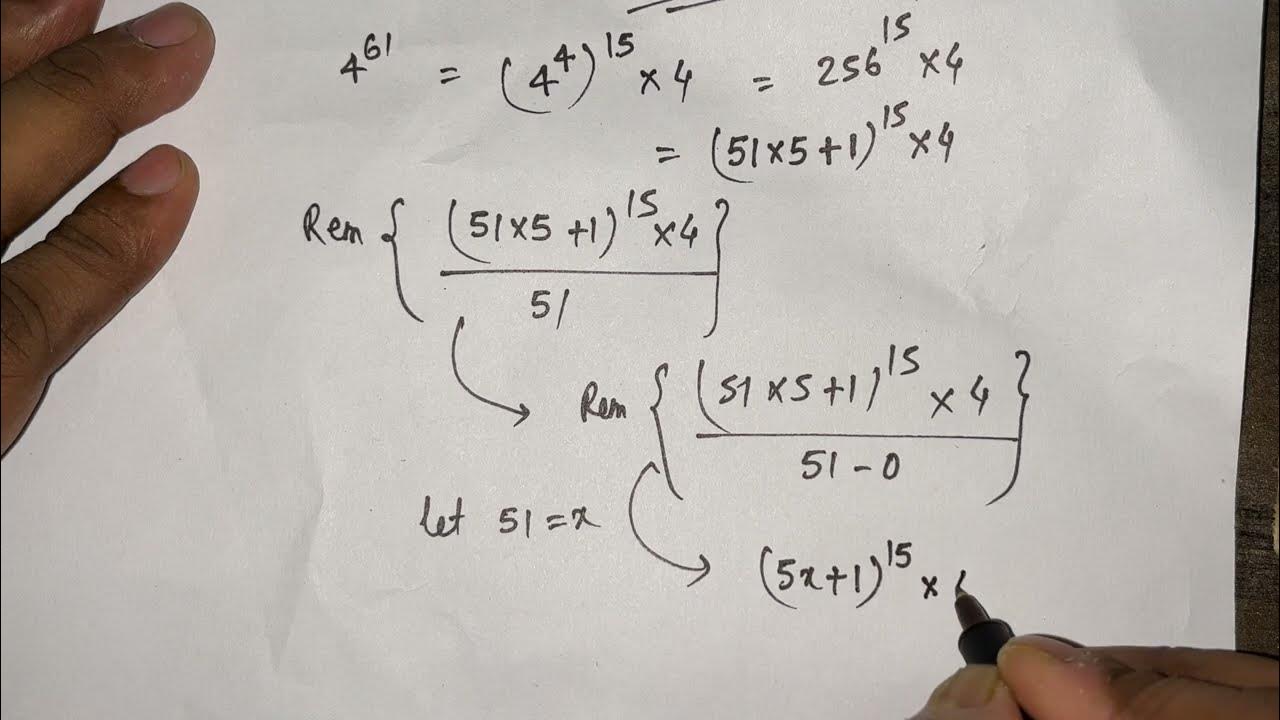 4^61 = (4^4)^15 × 4 = 256^15 × 4
= (51×5+1)^15 × 4
Rem { (51×5+1)^15 ×4 }
51
Rem { (51×5+1)^15 × 4 }
51 - 0
let 51 = x
(5x+1)^15 ×